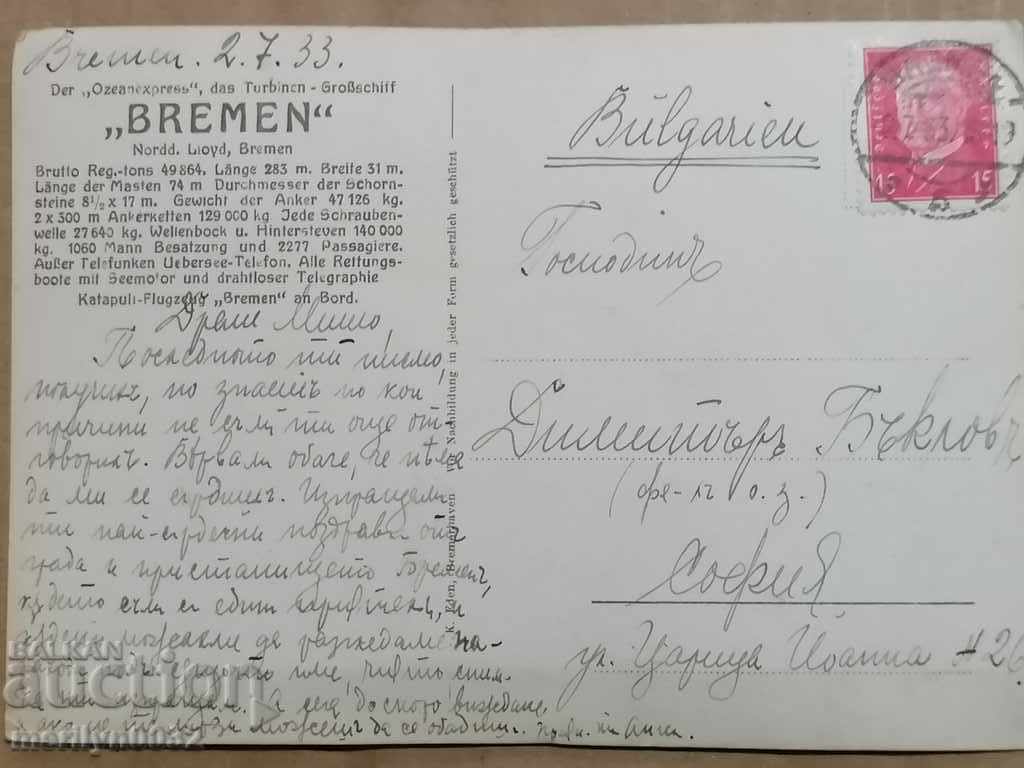 Bremen. 2.7.33.
Der „Ozeanexpress", das Turbinen-Großschiff
„BREMEN"
Nordd. Lloyd, Bremen
Brutto Reg.-tons 49864. Länge 283 m. Breite 31 m.
Länge der Masten 74 m Durchmesser der Schorn-
steine 8½ x 17 m. Gewicht der Anker 47 126 kg.
2 x 300 m Ankerketten 129 000 kg. Jede Schrauben-
welle 27 640 kg. Wellenbock u. Hintersteven 140 000
kg. 1060 Mann Besatzung und 2277 Passagiere.
Außer Telefunken Uebersee-Telefon. Alle Rettungs-
boote mit Seemotor und drahtloser Telegraphie
Katapult-Flugzeug „Bremen" an Bord.
Драги Мишо,
Последното ти писмо,
получихъ, но знаешъ по кои
причини не съмъ ти още от-
говорилъ. Вѣрвамъ обаче, че нѣма
да ми се сърдишъ. Изпращамъ
ти най-сърдечни поздрави отъ
града и пристанището Бременъ,
кѫдето съмъ
можахме да разгледаме
до скоро виждане
можешъ да се обадишъ.
K. Eden, Bremerhaven
Nachbildung in jeder Form gesetzlich geschützt
15 15
Bulgarien
Господинъ
Димитъръ Бъкловъ
(фе-лъ о. з.)
София
ул. Царица Иоанна № 26
BALKAN
auction
merilyn0032